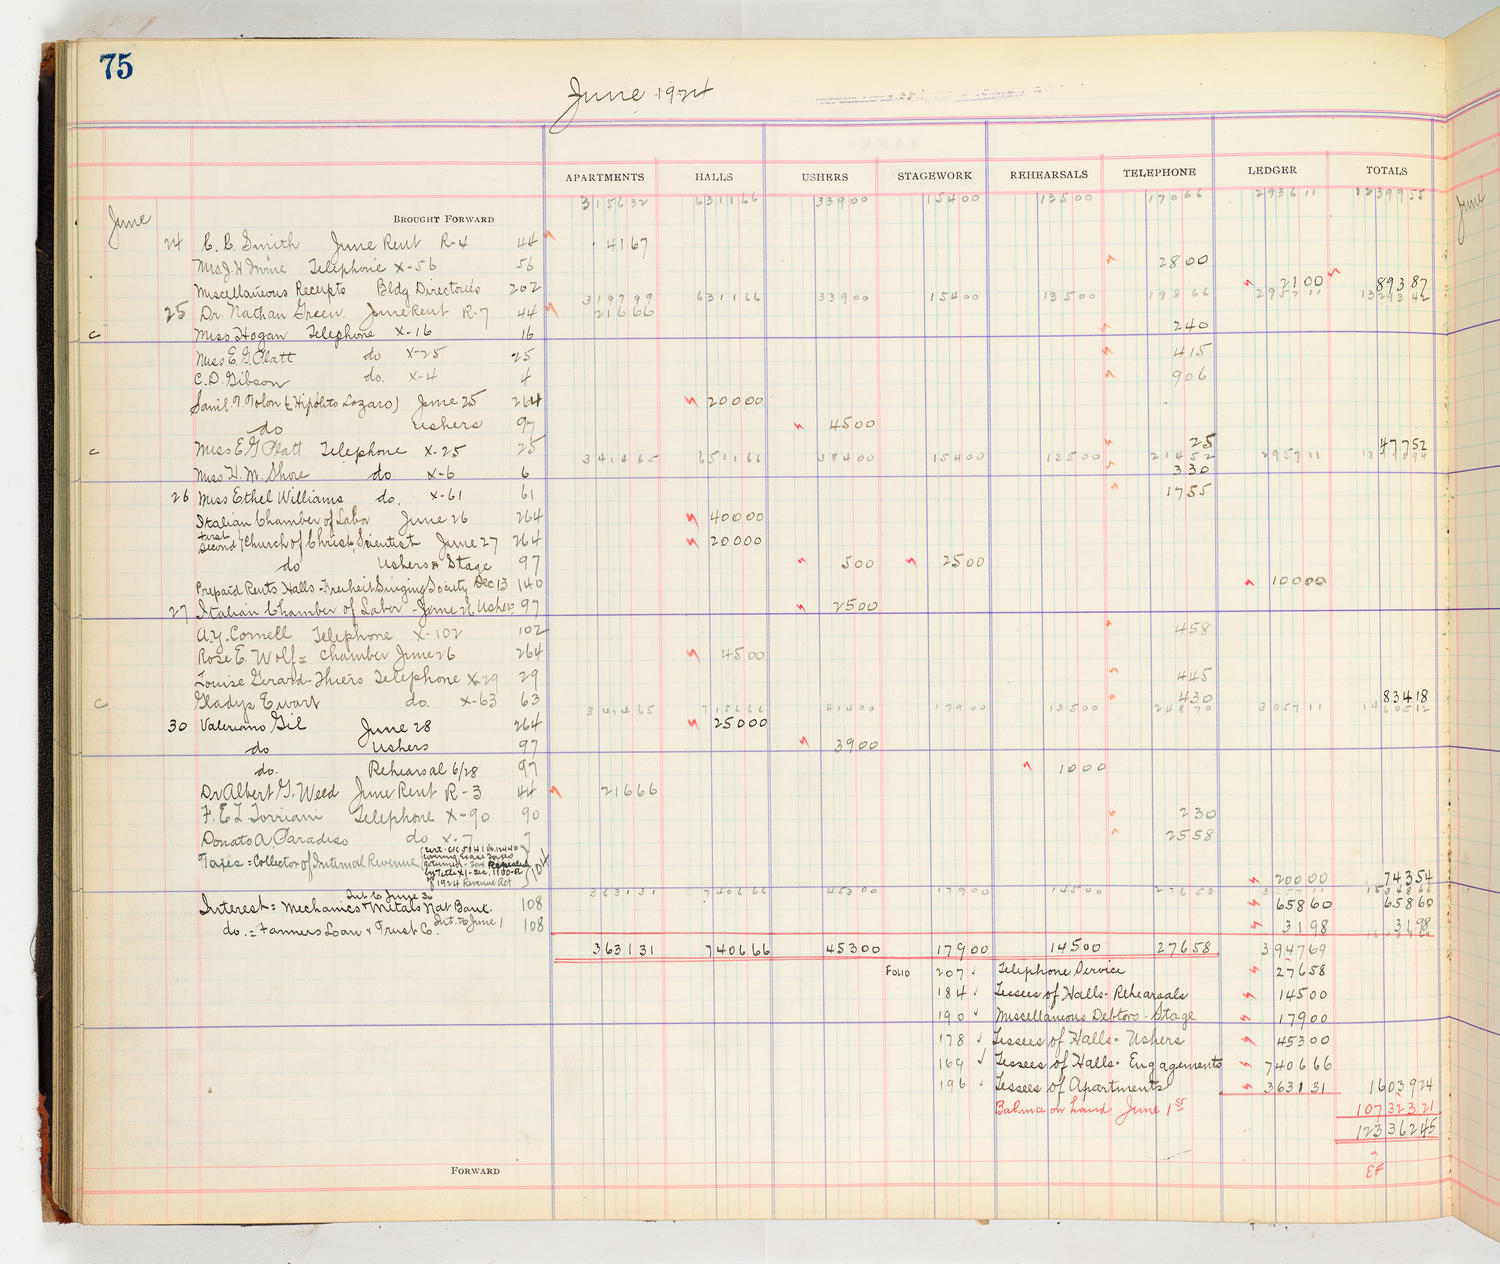 75
June 1924
APARTMENTS HALLS USHERS STAGEWORK REHEARSALS TELEPHONE LEDGER TOTALS
June BROUGHT FORWARD 315632 631166 33900 15400 13500 17066 293611 1239955
24 C. C. Smith June Rent R-4 44 4167
Mrs. J. H. Irvine Telephone X-56 56 2800
Miscellaneous Receipts Bldg Directories 202 2100 89387
319799 631166 33900 15400 13500 19866 295711
25 Dr. Nathan Green June Rent R-7 44 21666
c Miss Hogan Telephone X-16 16 240
Miss E. G. Platt do X-25 25 415
C. D. Gibson do. X-4 4 906
(Hipolito Lazaro) June 25 264 20000
do ushers 97 4500
c Miss E. G. Platt Telephone X-25 25 25 47752
341465 651166 38400 15400 13500 21452 295711
Miss H. M. Shore do X-6 6 330
26 Miss Ethel Williams do. X-61 61 1755
Italian Chamber of Labor June 26 264 40000
First Second Church of Christ, Scientist June 27 264 20000
do Ushers & Stage 97 500 2500
Prepaid Rents Halls - Freiheit Singing Society Dec 13 140 10000
27 Italian Chamber of Labor - June 26 Ushers 97 2500
A. Y. Cornell Telephone X-102 102 458
Rose E. Wolf = Chamber June 26 264 4500
Louise Gerard-Thiers Telephone X-29 29 445
c Gladys Ewart do. X-63 63 430 83418
341465 715666 41400 17900 13500 24870 305711 1460512
30 Valeriano Gil June 28 264 25000
do Ushers 97 3900
do. Rehearsal 6/28 97 1000
Dr Albert G. Weed June Rent R-3 44 21666
F. E. L. Torriani Telephone X-90 90 230
Donato A. Paradiso do X-7 7 2558
Taxes = Collector of Internal Revenue 104 20000 74354
1924 Revenue Act
363131 740666 45300 17900 14500 27658
Int. to June 30
Interest = Mechanics & Metals Nat Bank. 108 65860 65860
do. = Farmers Loan & Trust Co. Int. to June 1 108 3198 3198
363131 740666 45300 17900 14500 27658 394769
FOLIO 207 Telephone Service 27658
184 Lessees of Halls - Rehearsals 14500
190 Miscellaneous Debtors - Stage 17900
178 Lessees of Halls - Ushers 45300
169 Lessees of Halls - Engagements 740666
196 Lessees of Apartments 363131 1603924
Balance on hand June 1st 10732321
12336245
FORWARD